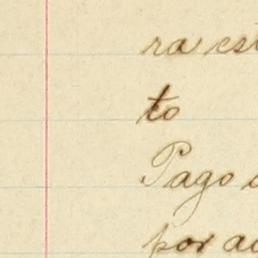 ra est
to
Pago a
por ad